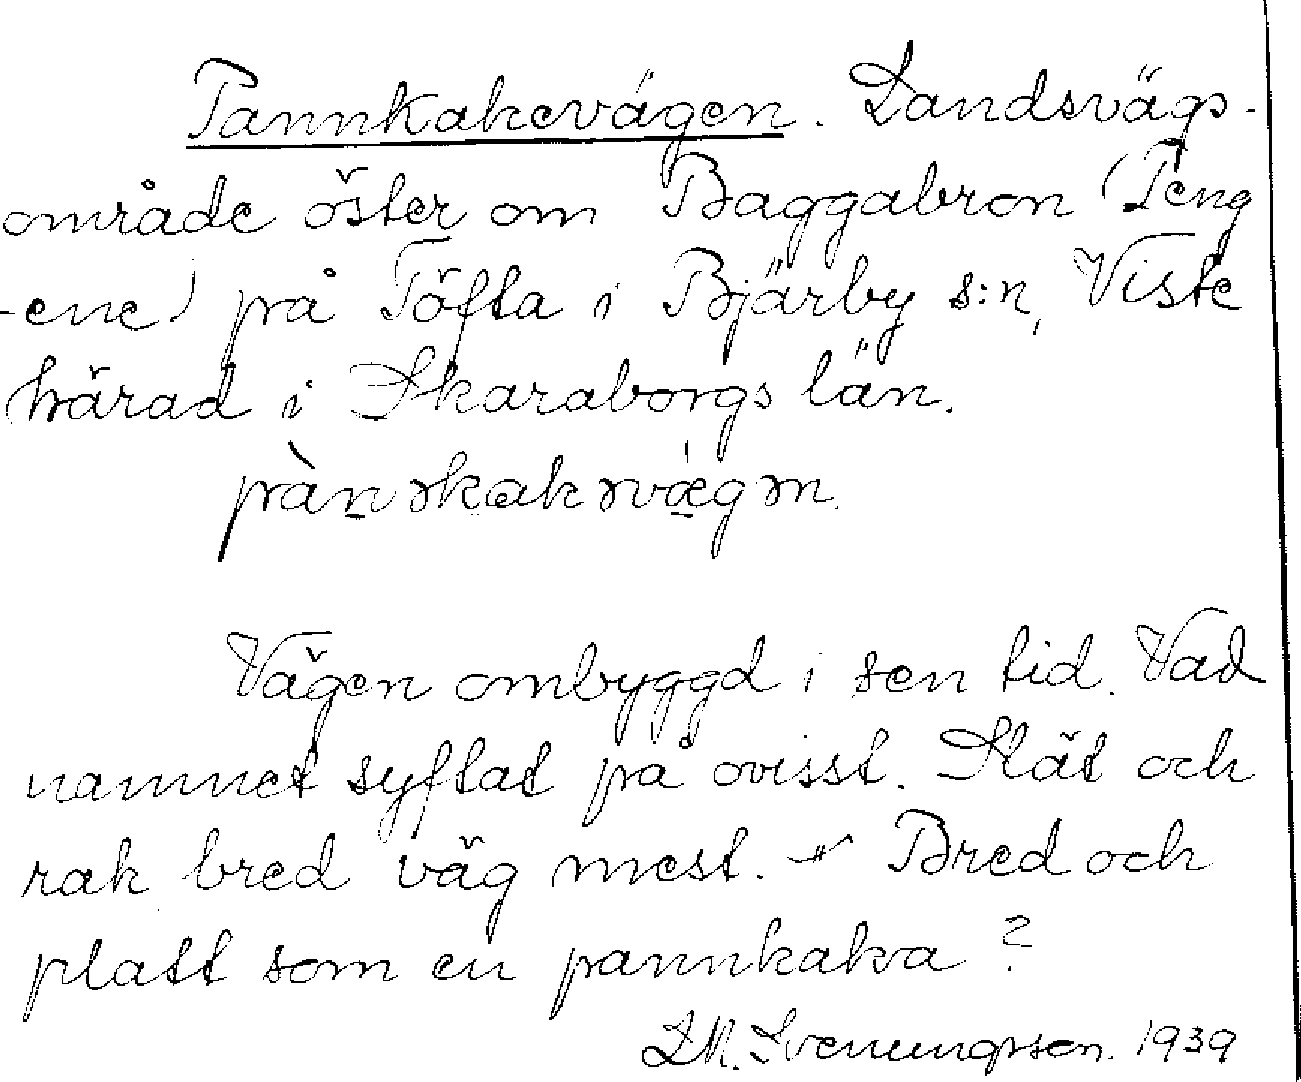 Pannkakevägen. Landsvägs-
område öster om Baggabron (Teng
-ene) på Töfta i Bjärby s:n, Viste
härad i Skaraborgs län.
Vägen ombyggd i sen tid. Vad
namnet syftat på ovisst. Slät och
rak bred väg mest. Bred och
platt som en pannkaka?
Svenungsson. 1939